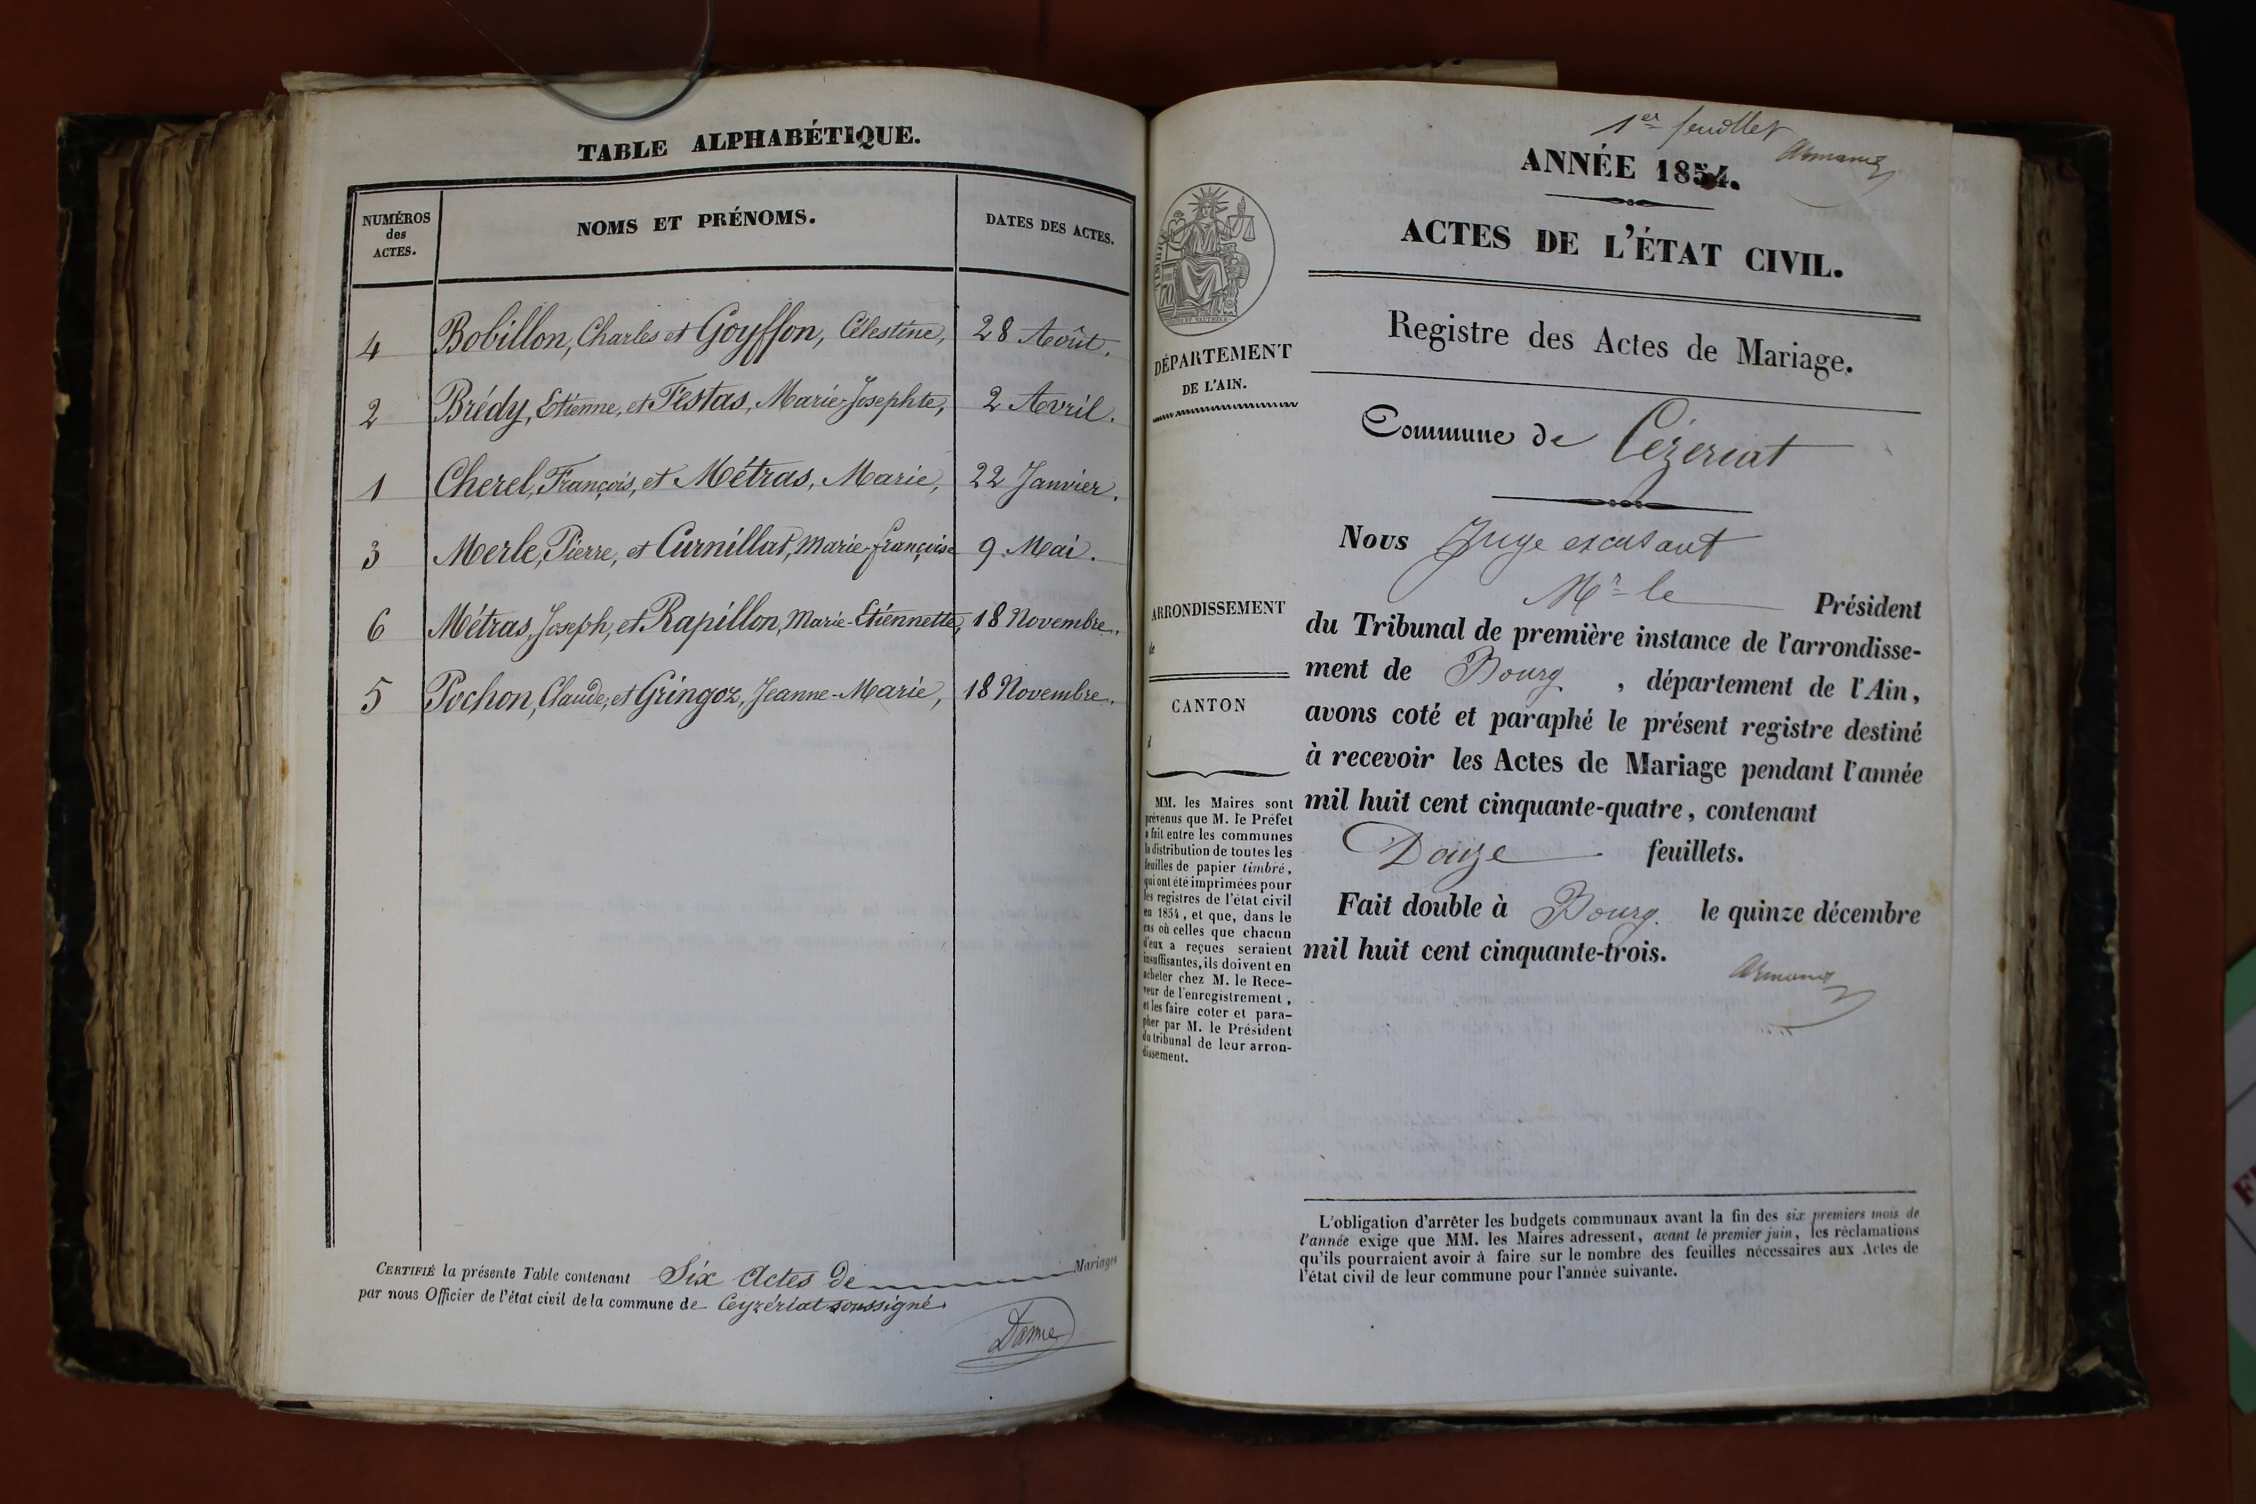 TABLE ALPHABÉTIQUE.
NUMÉROS
des
ACTES.
NOMS ET PRÉNOMS.
DATES DES ACTES.
4 Bobillon, Charles et Goyffon, Célestine, 28 Août.
2 Brédy, Etienne, et Testas, Marie-Josephte, 2 Avril.
1 Cherel, François, et Métras, Marie, 22 Janvier.
3 Merle, Pierre, et Curnillat, Marie-françoise 9 Mai.
6 Métras, Joseph, et Rapillon, Marie-Etiennette, 18 Novembre.
5 Pochon, Claude, et Gringoz, Jeanne-Marie, 18 Novembre.
CERTIFIÉ la présente Table contenant Six Actes de Mariages
par nous Officier de l'état civil de la commune de Ceyzériat soussigné.
1er feuillet
ANNÉE 1854.
ACTES DE L'ÉTAT CIVIL.
Registre des Actes de Mariage.
Commune de Cézeriat
DÉPARTEMENT
DE L'AIN.
ARRONDISSEMENT
de
CANTON
d
MM. les Maires sont
prévenus que M. le Préfet
a fait entre les communes
la distribution de toutes les
feuilles de papier timbré,
qui ont été imprimées pour
les registres de l'état civil
en 1854, et que, dans le
cas où celles que chacun
d'eux a reçues seraient
insuffisantes, ils doivent en
acheter chez M. le Rece-
veur de l'enregistrement,
et les faire coter et para-
pher par M. le Président
du tribunal de leur arron-
dissement.
Nous Juge excusant
Mr le Président
du Tribunal de première instance de l'arrondisse-
ment de Bourg, département de l'Ain,
avons coté et paraphé le présent registre destiné
à recevoir les Actes de Mariage pendant l'année
mil huit cent cinquante-quatre, contenant
Douze feuillets.
Fait double à Bourg le quinze décembre
mil huit cent cinquante-trois.
L'obligation d'arrêter les budgets communaux avant la fin des six premiers mois de
l'année exige que MM. les Maires adressent, avant le premier juin, les réclamations
qu'ils pourraient avoir à faire sur le nombre des feuilles nécessaires aux Actes de
l'état civil de leur commune pour l'année suivante.